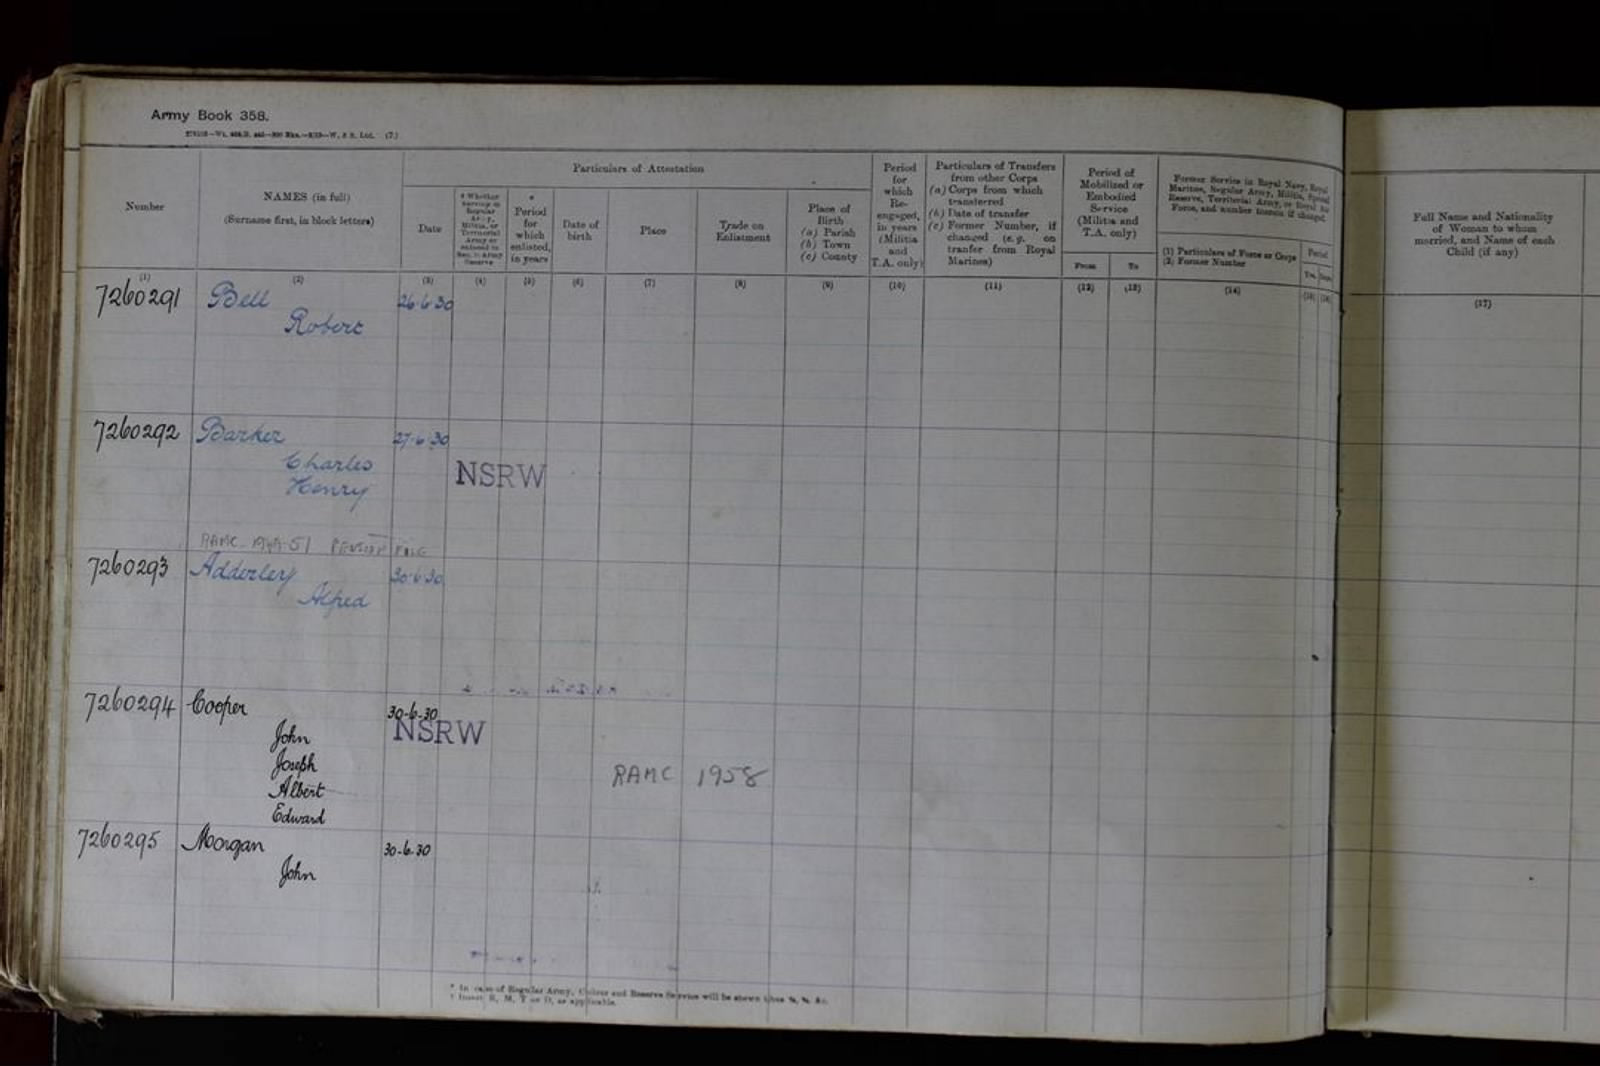 Army Book 358.
Particulars of Attestation
Number
NAMES (in full)
(Surname first, in block letters)
Date
Period
for
which
enlisted,
in years
Date of
birth
Place
Trade on
Enlistment
Place of
Birth
(a) Parish
(b) Town
(c) County
Period
for
which
Re-
engaged,
in years
(Militia
and
T.A. only)
Particulars of Transfers
from other Corps
(a) Corps from which
transferred
(b) Date of transfer
(c) Former Number, if
changed (e.g. on
tranfer from Royal
Marines)
Period of
Mobilized or
Embodied
Service
(Militia and
T.A. only)
From
To
Former Service in Royal Navy, Royal
Marines, Regular Army, Militia, Special
Reserve, Territorial Army, or Royal Air
Force, and number therein if changed.
(1) Particulars of Force or Corps
(2) Former Number
Period
Full Name and Nationality
of Woman to whom
married, and Name of each
Child (if any)
(1) (2) (3) (4) (5) (6) (7) (8) (9) (10) (11) (12) (13) (14) (15) (16) (17)
7260291 Bell 26.6.30
Robert
7260292 Barker 27.6.30
Charles
Henry
NSRW
RAMC 1949-51 PENSION FILE
7260293 Adderley 30.6.30
Alfred
7260294 Cooper 30-6-30
NSRW
John
Joseph
Albert
Edward
RAMC 1958
7260295 Morgan 30-6-30
John
* In case of Regular Army, Colour and Reserve Service will be shewn thus
† Insert R, M, T or D, as applicable.